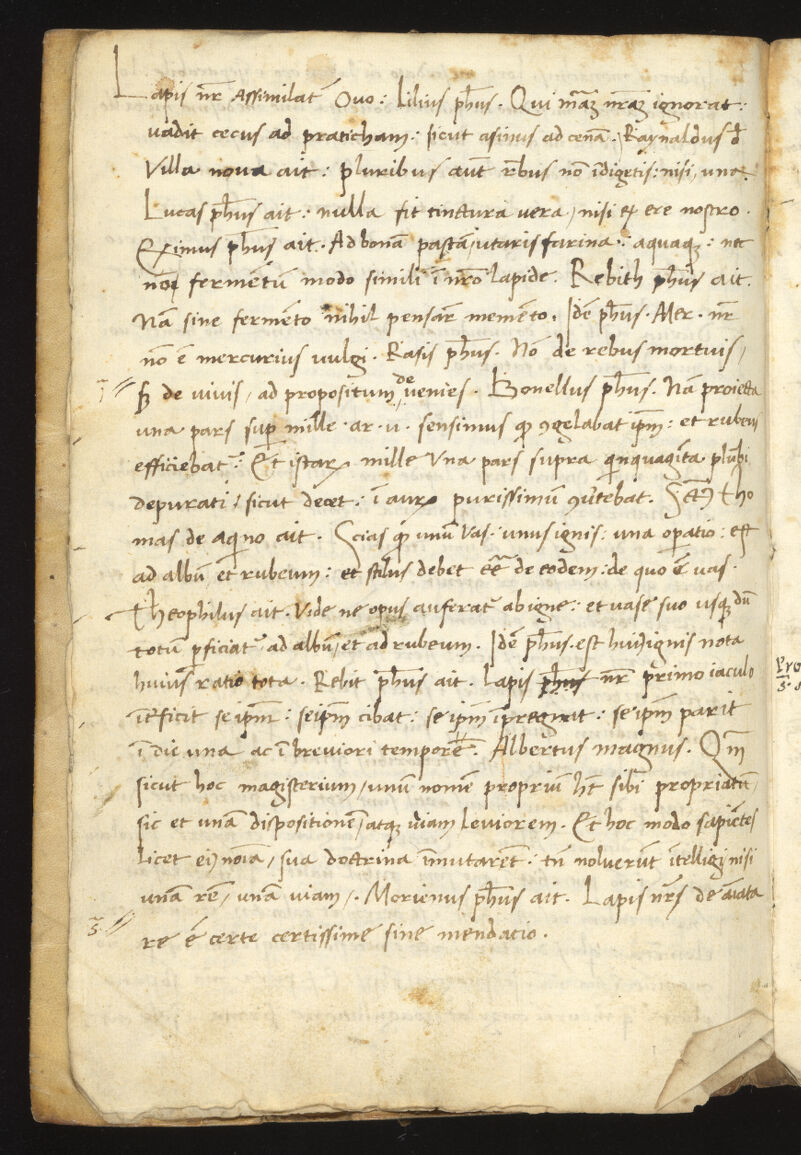 Lapis nr̄ Assimilat᷑ Ovo: Lilius ph̄us. Qui mr̄aȝ nr̄aȝ ignorat:
vadit cecus ad praticham: sicut asinus ad cenā. Raynaldus đ
Villa nova ait: pluribus aut̄ rebus nō īdigetis: nisi, una.
Lucas ph̄us ait: nulla fit tinctura vera, nisi ex ere nostro.
Eximus ph̄us ait. Ad bonā pastā, utaris farina: aquaqȝ: nec
non fermētū modo simili ī nr̄o lapide. Rebith ph̄us ait.
Nā sine fermēto nihil pensar̄ memēto. Idē ph̄us. Mer. nr̄
nō ē mercurius vulgi. Rasis ph̄us. Nō de rebus mortuis,
sȝ de vivis, ad propositum devenies. Bonellus ph̄us. Nā proiecta
una pars sup̄ mille. ar. v. sensimus qꝫ ꝯgelabat ip̄m: et rubeus
efficiebat᷑. Et istarꝝ mille Una pars supra quinquagīta plūbi
depurati, sicut decet: ī aurꝝ purissimū ꝯv̄tebat. Sctūs tho
mas de aqi̇no ait. Scias qꝫ unū vas. unus ignis: una oꝑatio: est
ad albū et rubeum: et stilus debet eē̄ de eodem: de quo ē vas.
Theophilus ait. Vide ne opus auferat᷑ ab igne: et vase suo usqȝ dū
totū ꝑficiat᷑ ad albū, et ad rubeum. Idē ph̄us. est hui᷒ ignis nota
huius ratio tota. Rebit ph̄us ait. Lapis nr̄ primo iaculo
īt̄ficit seip̄m: seip̄m cibat: seip̄m īpregnat: seip̄m parit
ī die una ac ī breviori tempore. Albertus magnus. Qm̄
sicut hoc magisterium, unū nomē propriū ht̄ sibi propriatū,
sic et unā dispositionē, atqȝ viam leviorem. Et hoc modo sapiētes,
licet ei᷒ noīa, sua doctrina īmutarēt. tn̄ noluerūt ītelligi nisi
unā rē, unā viam. Morienus ph̄us ait. Lapis nr̄s de aīata
re ē certe certissime sine mendatio.